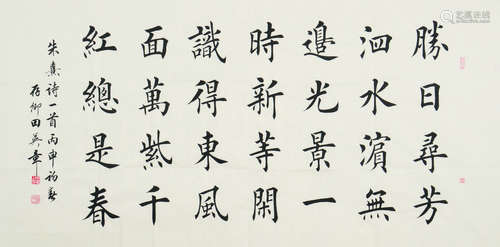 勝日尋芳
泗水濱無
邊光景一
時新等閑
識得東風
面萬紫千
紅總是春
朱熹诗一首丙申初春
存卿田英章